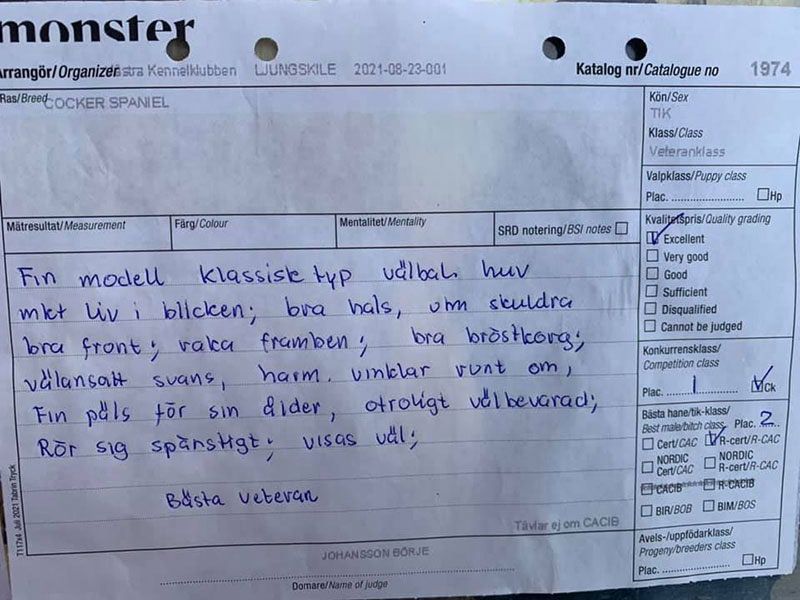 monster
Arrangör/Organizer Västra Kennelklubben LJUNGSKILE 2021-08-23-001 Katalog nr/Catalogue no 1974
Ras/Breed COCKER SPANIEL
Kön/Sex
TIK
Klass/Class
Veteranklass
Valpklass/Puppy class
Plac. Hp
Mätresultat/Measurement Färg/Colour Mentalitet/Mentality SRD notering/BSI notes
Kvalitetspris/Quality grading
Excellent
Very good
Good
Sufficient
Disqualified
Cannot be judged
Fin modell klassisk typ välbah huv
mkt liv i blicken; bra hals, o skuldra
bra front; raka framben; bra bröstkorg;
välansatt svans, harm. vinklar runt om,
Fin päls för sin ålder, otroligt välbevarad;
Rör sig spänstigt; visas väl;
Bästa veteran
Konkurrensklass/
Competition class
Plac. 1 Ck
Bästa hane/tik-klass/
Best male/bitch class Plac. 2
Cert/CAC R-cert/R-CAC
NORDIC Cert/CAC NORDIC R-cert/R-CAC
CACIB R-CACIB
BIR/BOB BIM/BOS
Tävlar ej om CACIB
Avels-/uppfödarklass/
Progeny/breeders class
Plac. Hp
JOHANSSON BÖRJE
Domare/Name of judge
T117x4 Juli 2021 Tabrin Tryck